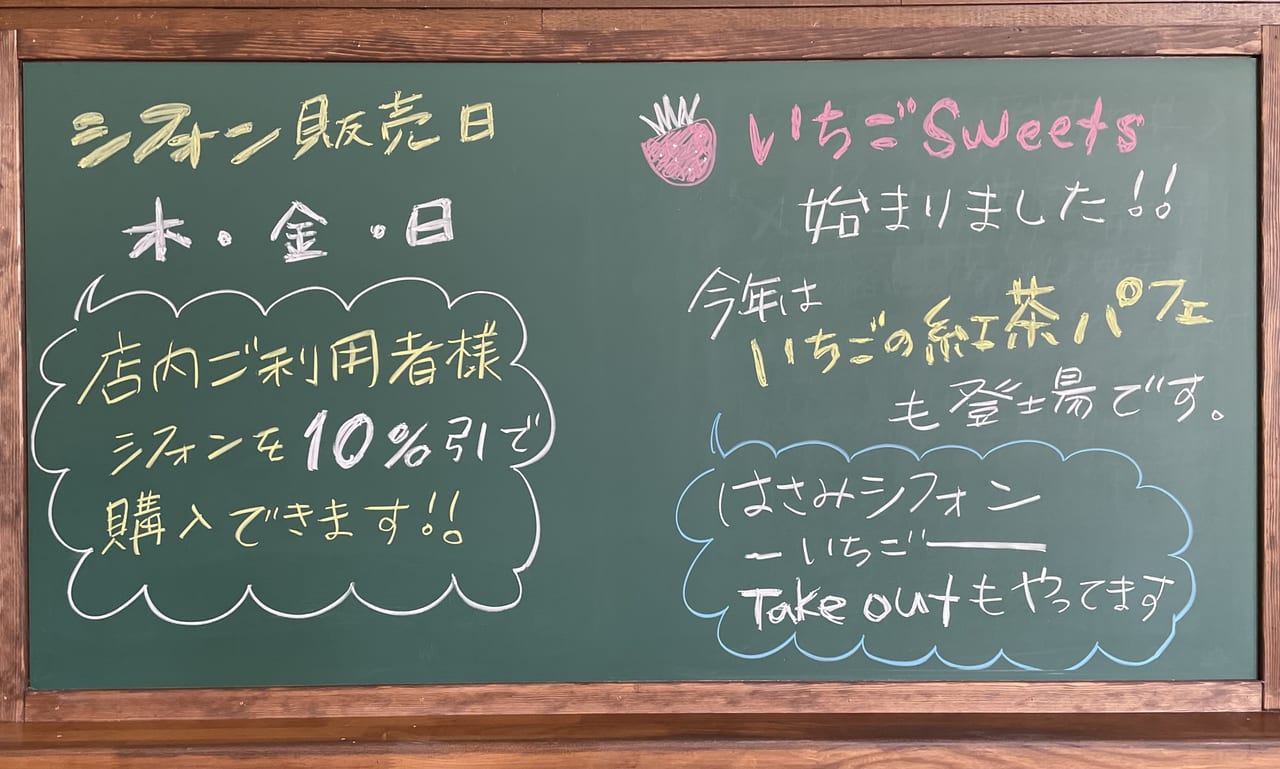 シフォン販売日
木・金・日
店内ご利用者様
シフォンを10%引で
購入できます!!
いちごSweets
始まりました!!
今年は
いちごの紅茶パフェ
も登場です。
はさみシフォン
ーいちごー
Take outもやってます